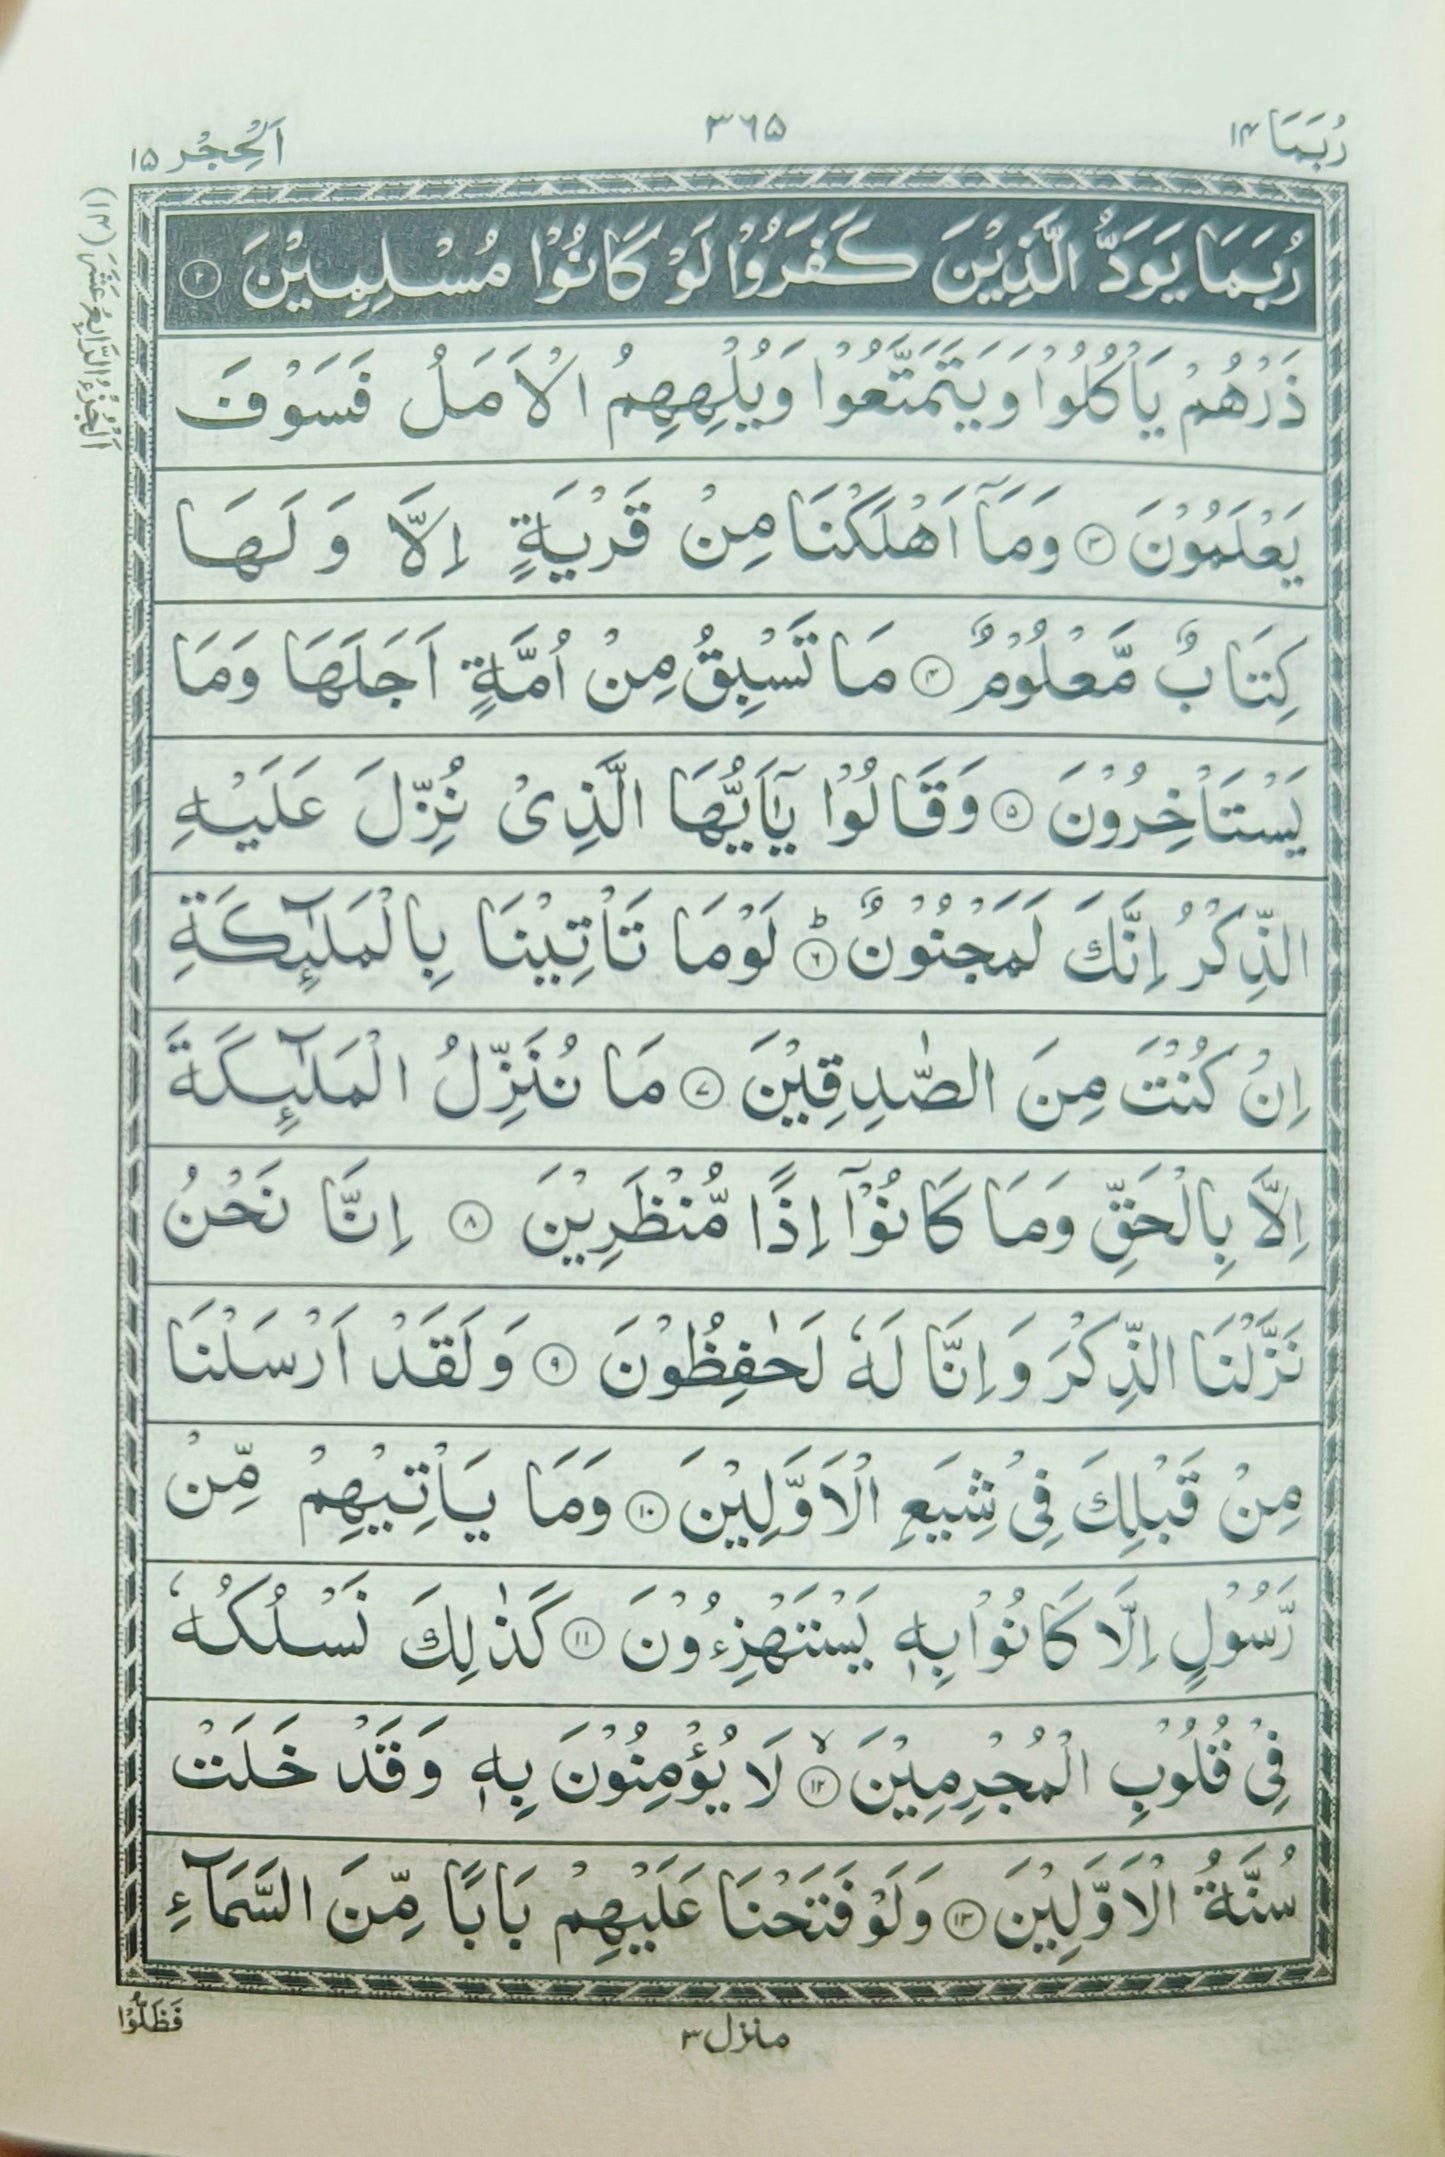 رُبَمَا ١٤
٣٦٥
اَلْحِجْر ١٥
رُبَمَا يَوَدُّ الَّذِيْنَ كَفَرُوْا لَوْ كَانُوْا مُسْلِمِيْنَ ۝٢
ذَرْهُمْ يَاْكُلُوْا وَيَتَمَتَّعُوْا وَيُلْهِهِمُ الْاَمَلُ فَسَوْفَ
يَعْلَمُوْنَ ۝٣ وَمَاۤ اَهْلَكْنَا مِنْ قَرْيَةٍ اِلَّا وَلَهَا
كِتَابٌ مَّعْلُوْمٌ ۝٤ مَا تَسْبِقُ مِنْ اُمَّةٍ اَجَلَهَا وَمَا
يَسْتَاْخِرُوْنَ ۝٥ وَقَالُوْا يٰۤاَيُّهَا الَّذِىْ نُزِّلَ عَلَيْهِ
الذِّكْرُ اِنَّكَ لَمَجْنُوْنٌ ۝٦ؕ لَوْمَا تَاْتِيْنَا بِالْمَلٰٓئِكَةِ
اِنْ كُنْتَ مِنَ الصّٰدِقِيْنَ ۝٧ مَا نُنَزِّلُ الْمَلٰٓئِكَةَ
اِلَّا بِالْحَقِّ وَمَا كَانُوْۤا اِذًا مُّنْظَرِيْنَ ۝٨ اِنَّا نَحْنُ
نَزَّلْنَا الذِّكْرَ وَاِنَّا لَهٗ لَحٰفِظُوْنَ ۝٩ وَلَقَدْ اَرْسَلْنَا
مِنْ قَبْلِكَ فِىْ شِيَعِ الْاَوَّلِيْنَ ۝١٠ وَمَا يَاْتِيْهِمْ مِّنْ
رَّسُوْلٍ اِلَّا كَانُوْا بِهٖ يَسْتَهْزِءُوْنَ ۝١١ كَذٰلِكَ نَسْلُكُهٗ
فِىْ قُلُوْبِ الْمُجْرِمِيْنَ ۝١٢ۙ لَا يُؤْمِنُوْنَ بِهٖ وَقَدْ خَلَتْ
سُنَّةُ الْاَوَّلِيْنَ ۝١٣ وَلَوْ فَتَحْنَا عَلَيْهِمْ بَابًا مِّنَ السَّمَآءِ
اَلْجُزْءُ الرَّابِعُ عَشَرَ (١٤)
منزل ٣
فَظَلُّوْا